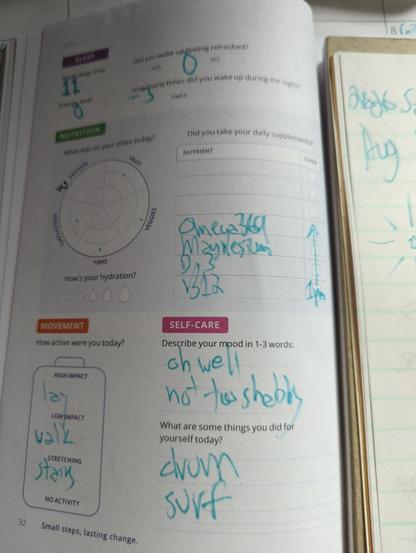 SLEEP
Did you wake up feeling refreshed?
YES
NO
sleep time
11
How many times did you wake up during the night?
~3
TIMES
Energy level
NUTRITION
What was on your plate today?
PROTEIN
FRUIT
VEGGIES
FIBRE
Did you take your daily supplements?
NUTRIENT
Omega
Magnesium
D, 3
B12
1pm
How's your hydration?
MOVEMENT
How active were you today?
HIGH IMPACT
LOW IMPACT
walk
STRETCHING
NO ACTIVITY
SELF-CARE
Describe your mood in 1-3 words:
oh well
not too shabby
What are some things you did for
yourself today?
drum
surf
32 Small steps, lasting change.
Aug